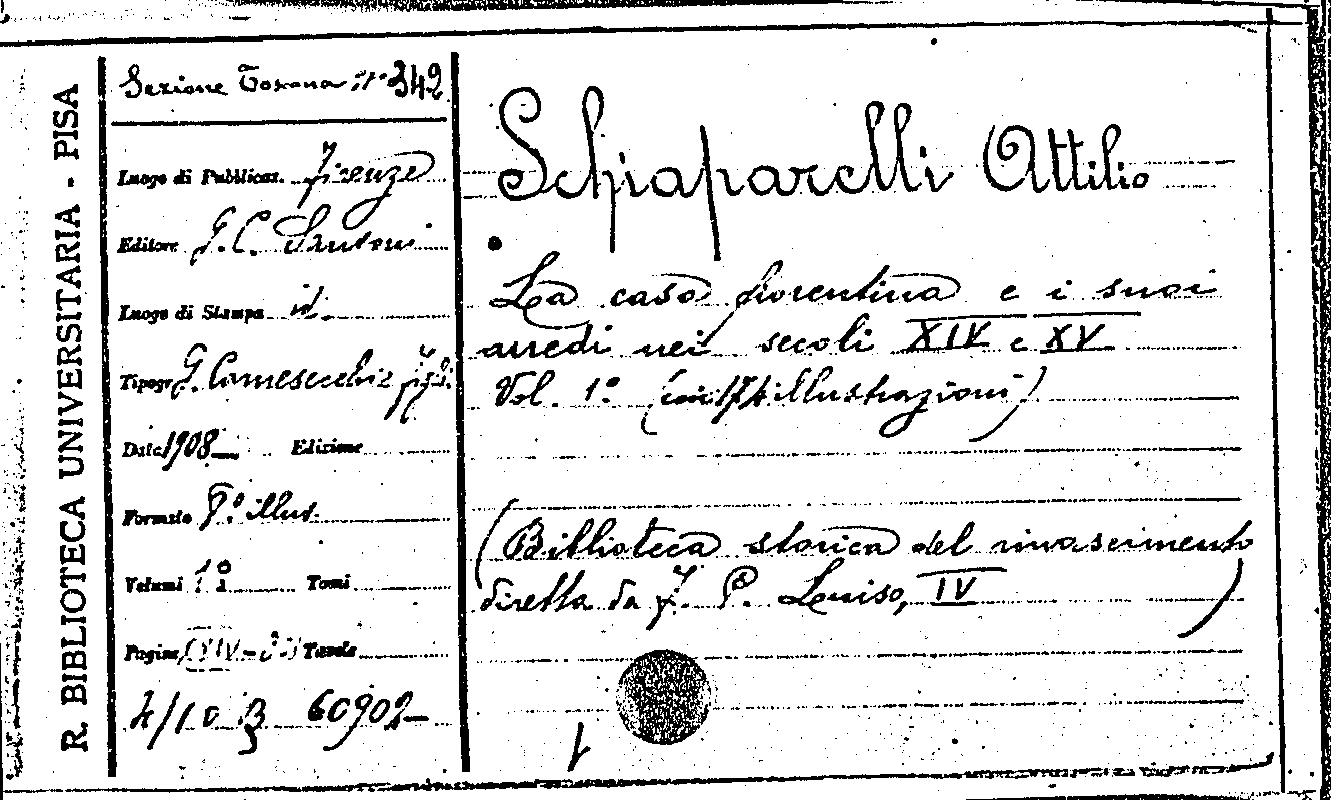 R. BIBLIOTECA UNIVERSITARIA - PISA
Sezione Toscana n° 342
Luogo di Pubblicaz. Firenze
Editore G. C. Sansoni
Luogo di Stampa id.
Tipogr. G. Carnesecchi e figli
Data 1908 Edizione
Formato 8.° illus.
Volumi 1° Tomi
Pagine Tavole
60902
Schiaparelli Attilio
La casa fiorentina e i suoi
arredi nei secoli XIV e XV
Vol. 1.° (con 174 illustrazioni)
(Biblioteca storica del rinascimento
diretta da F. P. Luiso, IV)